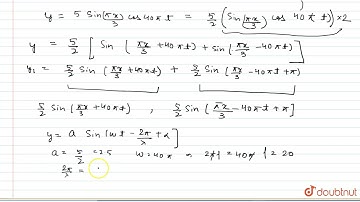 y = 5 Sin(πx/3) cos 40πt = 5/2 (Sin(πx/3) cos 40πt)×2
y = 5/2 [ Sin ( πx/3 + 40πt) + Sin ( πx/3 - 40πt) ]
y₁ = 5/2 Sin ( πx/3 + 40πt) + 5/2 Sin ( πx/3 - 40πt + π)
5/2 Sin ( πx/3 + 40πt) , 5/2 Sin [ πx/3 - 40πt + π]
y = a Sin [ωt - 2πx/λ + α]
a = 5/2 = 2.5 ω = 40π 2πf = 40π f = 20
2π/λ =
doubtnut